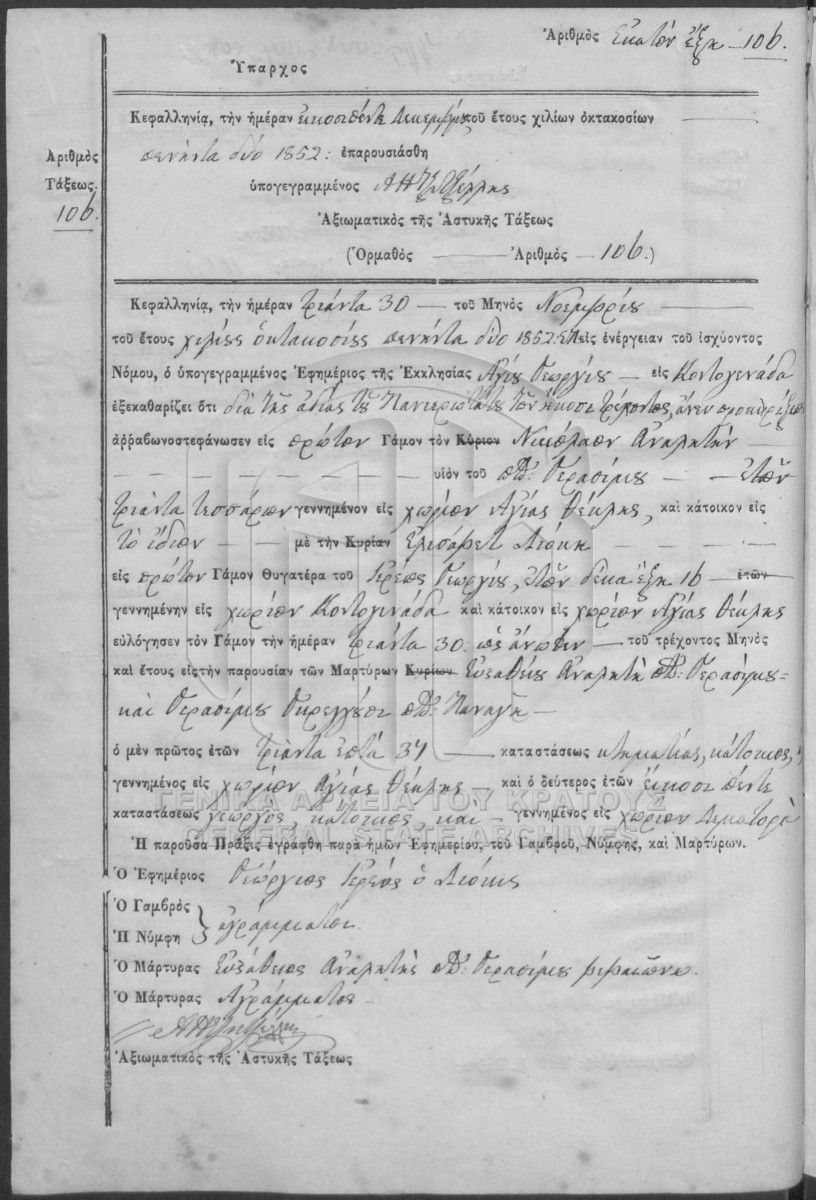 Ἀριθμὸς Ἑκατὸν ἕξη — 106.
Ὕπαρχος
Κεφαλληνία, τὴν ἡμέραν εἰκοσιπέντε Δεκεμβρίου τοῦ ἔτους χιλίων ὀκτακοσίων
πενήντα δύο 1852: ἐπαρουσιάσθη
Ἀριθμὸς
Τάξεως.
106.
ὑπογεγραμμένος
Ἀξιωματικὸς τῆς Ἀστυκῆς Τάξεως
(Ὁρμαθὸς — Ἀριθμὸς — 106.)
Κεφαλληνία, τὴν ἡμέραν τριάντα 30 — τοῦ Μηνὸς Νοεμβρίου
τοῦ ἔτους χιλίους ὀκτακοσίους πενήντα δύο 1852: Ε.Π. εἰς ἐνέργειαν τοῦ ἰσχύοντος
Νόμου, ὁ ὑπογεγραμμένος Ἐφημέριος τῆς Ἐκκλησίας Ἁγίου Γεωργίου — εἰς Κοντογενάδα
ἐξεκαθαρίζει ὅτι διὰ τῆς ἀδίας τοῦ Πανιερωτάτου τῶν εἴκοσι τρέχοντος, ἄνευ
ἀῤῥαβωνοστεφάνωσεν εἰς πρῶτον Γάμον τὸν Κύριον Νικόλαον Ἀναλητὴν —
— υἱὸν τοῦ ποτὲ: Γερασίμου — ἐτῶν
τριάντα τεσσάρων γεννημένον εἰς χωρίον Ἁγίας Θέκλης, καὶ κάτοικον εἰς
τὸ ἴδιον — μὲ τὴν Κυρίαν Ἐλισάβετ Λιόκη —
εἰς πρῶτον Γάμον Θυγατέρα τοῦ Ἱερέος Γεωργίου, ἐτῶν δέκα ἕξη 16 — ἐτῶν
γεννημένην εἰς χωρίον Κοντογενάδα καὶ κάτοικον εἰς χωρίον Ἁγίας Θέκλης
εὐλόγησεν τὸν Γάμον τὴν ἡμέραν τριάντα 30: ὡς ἄνωθεν — τοῦ τρέχοντος Μηνὸς
καὶ ἔτους εἰς τὴν παρουσίαν τῶν Μαρτύρων Κυρίων Εὐσταθίου Ἀναλητὴ ποτὲ: Γερασίμου =
καὶ Γερασίμου ποτὲ: Παναγῆ —
ὁ μὲν πρῶτος ἐτῶν τριάντα ἑπτά 37 — καταστάσεως κτηματίας, κάτοικος,
γεννημένος εἰς χωρίον Ἁγίας Θέκλης — καὶ ὁ δεύτερος ἐτῶν εἴκοσι πέντε
καταστάσεως γεωργὸς, κάτοικος, καὶ — γεννημένος εἰς χωρίον Δεματορὰ
Ἡ παροῦσα Πρᾶξις ἐγράφθη παρὰ ἡμῶν Ἐφημερίου, τοῦ Γαμβροῦ, Νύμφης, καὶ Μαρτύρων.
Ὁ Ἐφημέριος Γεώργιος Ἱερεὺς ὁ Λιόκις
Ὁ Γαμβρὸς
Ἡ Νύμφη ἀγράμματοι
Ὁ Μάρτυρας Εὐστάθιος Ἀναλητῆς ποτὲ: Γερασίμου βεβαιῶνω.
Ὁ Μάρτυρας Ἀγράμματος —
Ἀξιωματικὸς τῆς Ἀστυκῆς Τάξεως
ΓΕΝΙΚΑ ΑΡΧΕΙΑ ΤΟΥ ΚΡΑΤΟΥΣ
GENERAL STATE ARCHIVES